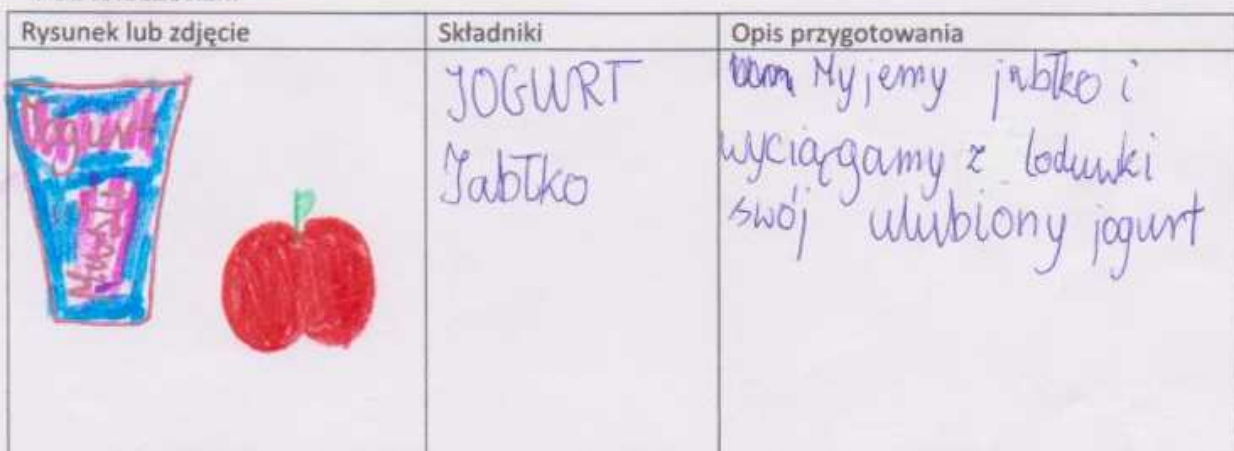 Rysunek lub zdjęcie
Składniki
Opis przygotowania
Jogurt
Musli
JOGURT
Jabłko
Myjemy jabłko i
wyciągamy z loduwki
swój ulubiony jogurt